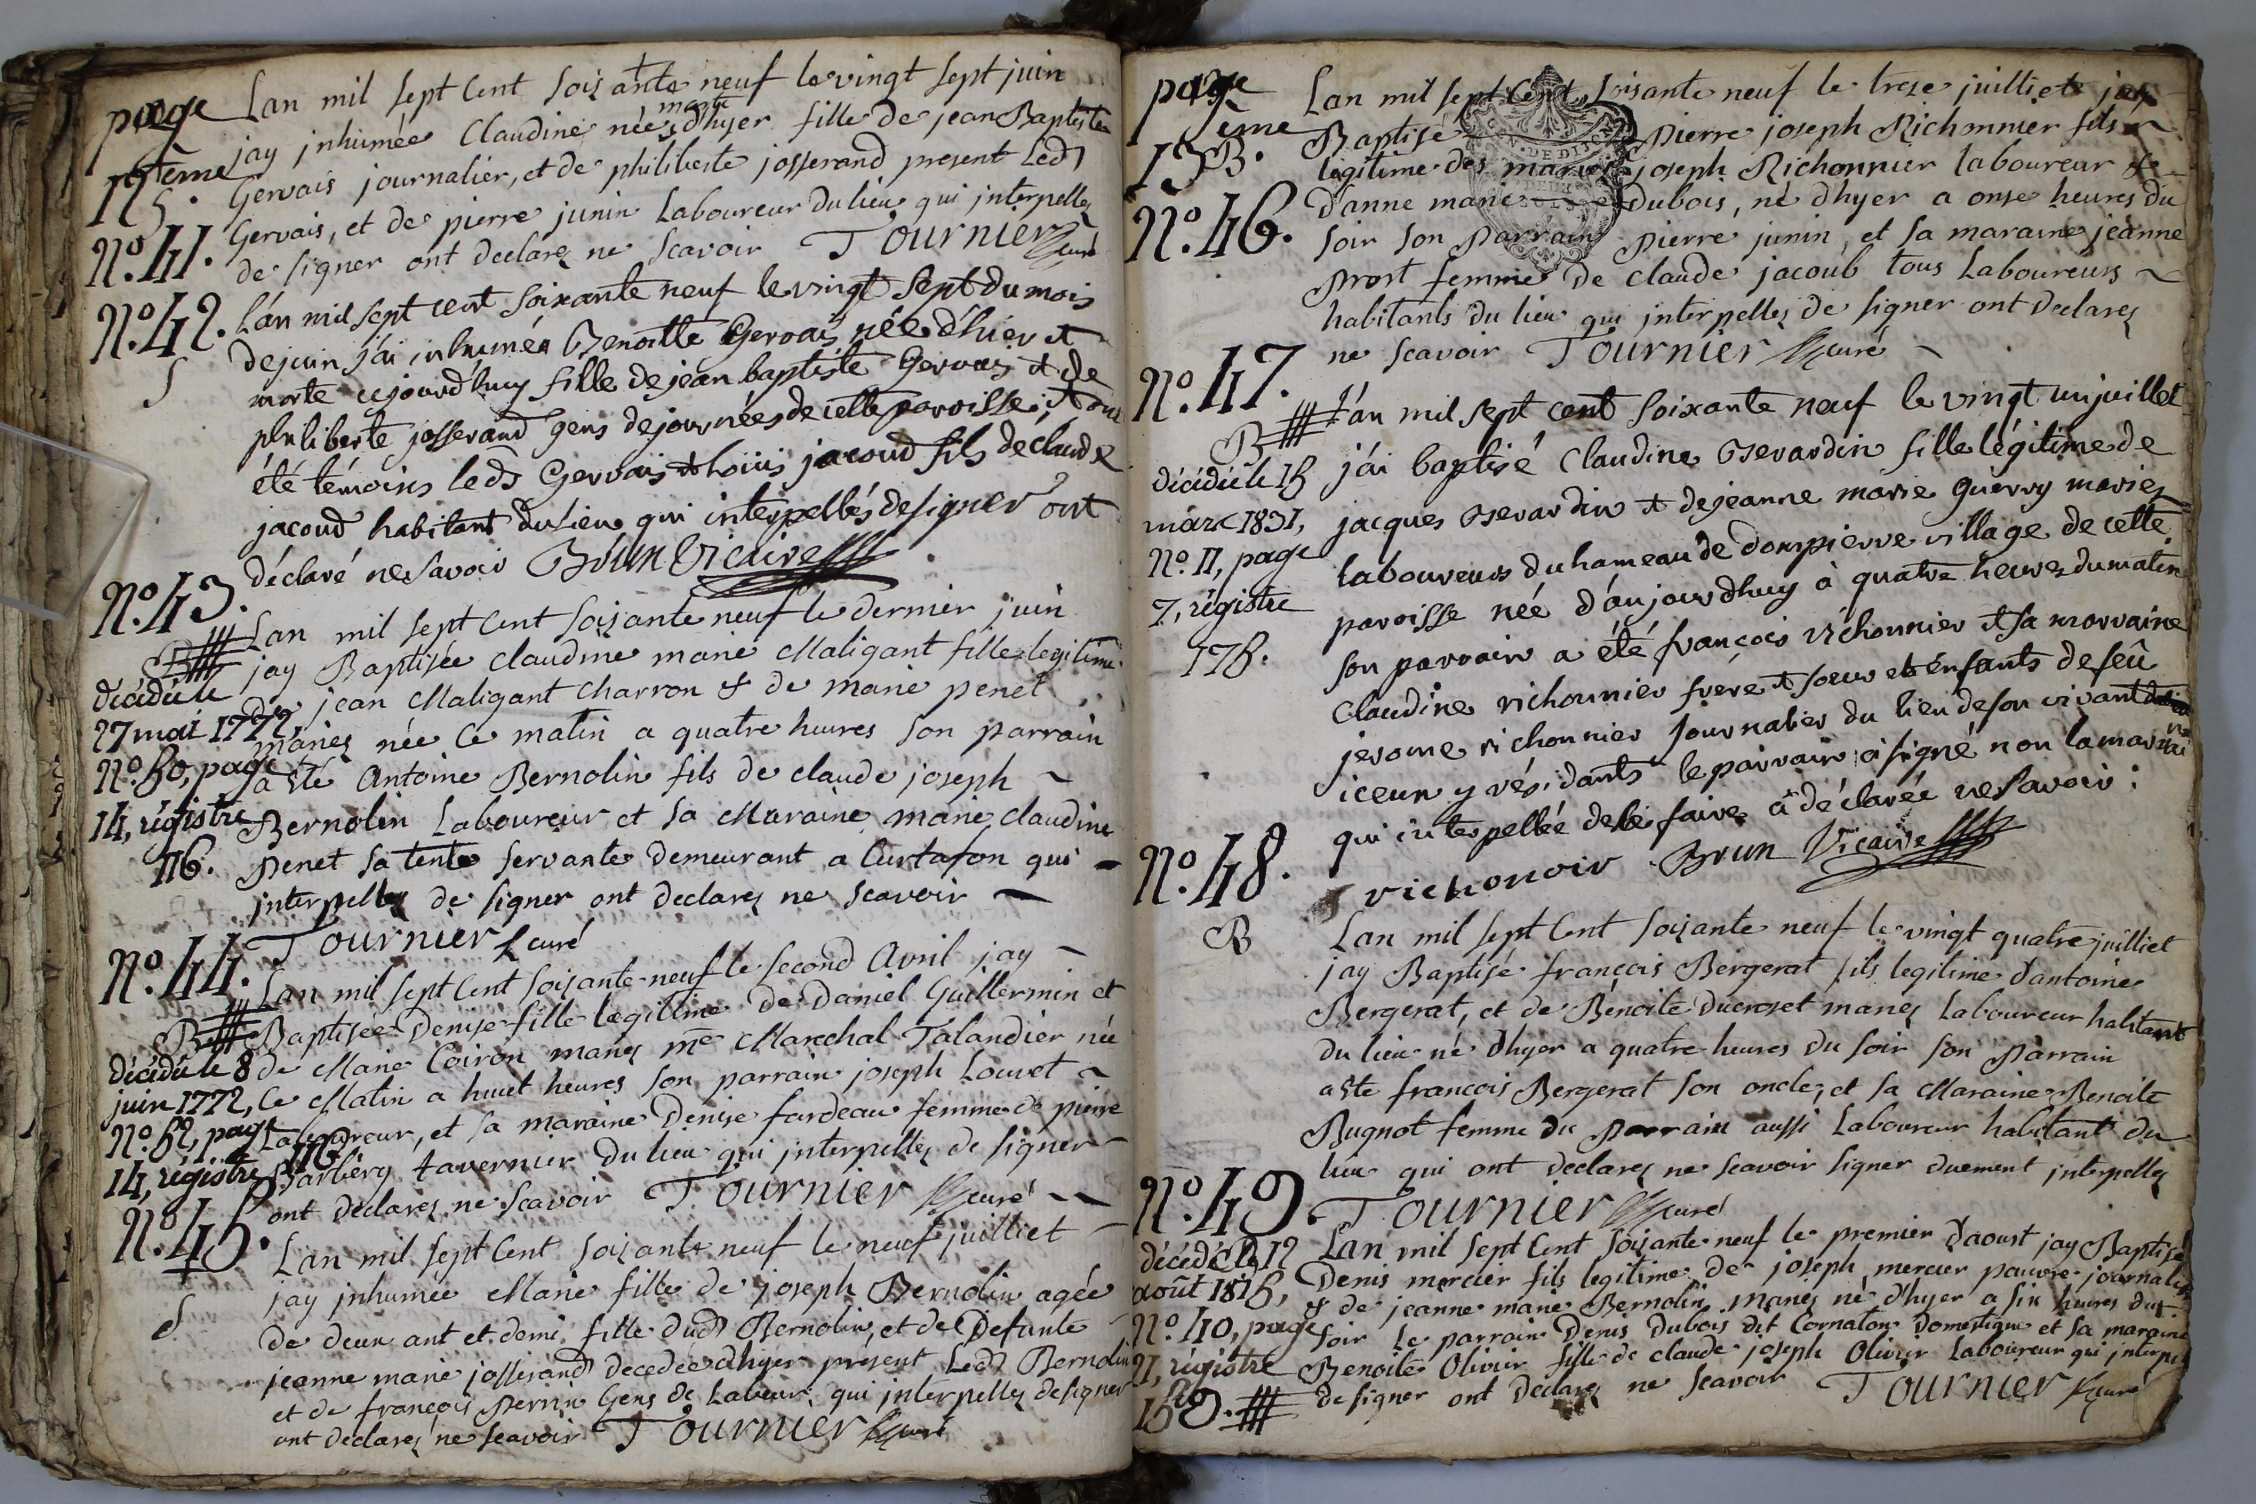 page
12ème
S.
N.º 41.
Lan mil sept Cent soixante neuf le vingt sept juin
jay inhumée Claudine née marie dhyer fille de jean Baptiste
Gervais journalier, et de philiberte josserand present Led
Gervais, et de pierre junin Laboureur du lieu qui interpellez
de signer ont declarez ne scavoir TOURNIER curé
N.º 42.
S
L'an mil sept cent soixante neuf le vingt sept du mois
de juin j'ai inhumée Benoitte Gervais née d'hier et
morte cejourd'huy fille de jean baptiste Gervais et de
philiberte josserand gens de journées de cette paroisse; et ont
été témoins leds Gervais et loüis jacoud fils de claude
jacoud habitant du lieu qui interpellés de signer ont
déclaré ne savoir Brun Vicaire
N.º 43.
B
décédée le
27 mai 1772,
N.º 50, page
14, régistre
116.
Lan mil sept Cent soixante neuf le dernier juin
jay Baptisée Claudine marie Maligant fille legitime
de jean Maligant charron & de marie penet
mariez née ce matin a quatre heures son parrain
a été Antoine Bernolin fils de claude joseph
Bernolin Laboureur et sa Maraine marie claudine
penet sa tente servante demeurant a Curtafon qui
interpellez de signer ont declarez ne scavoir
TOURNIER curé
N.º 44.
B
décédée le 8
juin 1772,
N.º 52, page
14, régistre 116
Lan mil sept Cent soixante neuf le second Avril jay
Baptisée Denise fille legitime de Daniel Guillermin et
de Marie Coiron mariez me Marechal Talandier née
ce Matin a huict heures son parrain joseph Louvet
Laboureur, et sa maraine Denise fardeau femme de pierre
Barbery tavernier du lieu qui interpellez de signer
ont declarez ne scavoir TOURNIER curé
N.º 45.
S
Lan mil sept Cent soixante neuf le neuf juilliet
jay inhumée Marie fille de joseph Bernolin agée
de deux ant et demi fille dud Bernolin, et de Defunte
jeanne marie josserand decedée dhyer présent Led Bernolin
et de françois perrin Gens de Labeur qui interpellez de signer
ont declarez ne scavoir TOURNIER curé
page
13ème
B.
N.º 46.
Lan mil sept Cent soixante neuf le treze juilliet jay
Baptisé Pierre joseph Richonnier fils
legitime des mariez joseph Richonnier laboureur &
d'anne marie Dubois, né dhyer a onze heures du
soir son Parrain Pierre junin, et sa maraine jeanne
Prost femme de Claude jacoub tous Laboureurs
habitants du lieu qui interpellez de signer ont declarez
ne scavoir TOURNIER curé
N.º 47.
B
décédée le 15
mars 1831,
N.º 11, page
7, régistre
178.
L'an mil sept cent soixante neuf le vingt un juillet
j'ai baptisé Claudine Gerardin fille légitime de
jacques Gerardin et de jeanne marie guerry mariez
laboureurs du hameau de dompierre village de cette
paroisse née d'aujourdhuy à quatre heures du matin
son parrain a été françois richonnier et sa marraine
Claudine richonnier frère et soeur et enfants de feû
jerome richonnier journalier du lieu de son vivant
iceux y résidants le parrain a signé non la marraine
qui interpellée de le faire a déclarée ne savoir:
richonoir Brun Vicaire
N.º 48.
B
Lan mil sept Cent soixante neuf le vingt quatre juilliet
jay Baptisé françois Bergerat fils legitime dantoine
Bergerat, et de Benoite Ducroset mariez Laboureur habitant
du lieu né dhyer a quatre heures du soir son Parrain
a été françois Bergerat son oncle, et sa Maraine Benoite
Bugnot femme du Parrain aussi Laboureur habitant du
lieu qui ont declarez ne scavoir signer duement interpellez
TOURNIER curé
N.º 49.
B
décédé le 12
août 1815,
N.º 40, page
21, régistre
159.
Lan mil sept Cent soixante neuf le premier Daoust jay Baptisé
Denis mercier fils legitime de joseph mercier pauvre journalier
& de jeanne marie Bernolin mariez né dhyer a six heures du
soir le parrain Denis Dubois dit Cornaton Domestique et sa maraine
Benoite Olivier fille de claude joseph Olivier Laboureur qui interpellez
de signer ont declarez ne scavoir TOURNIER curé